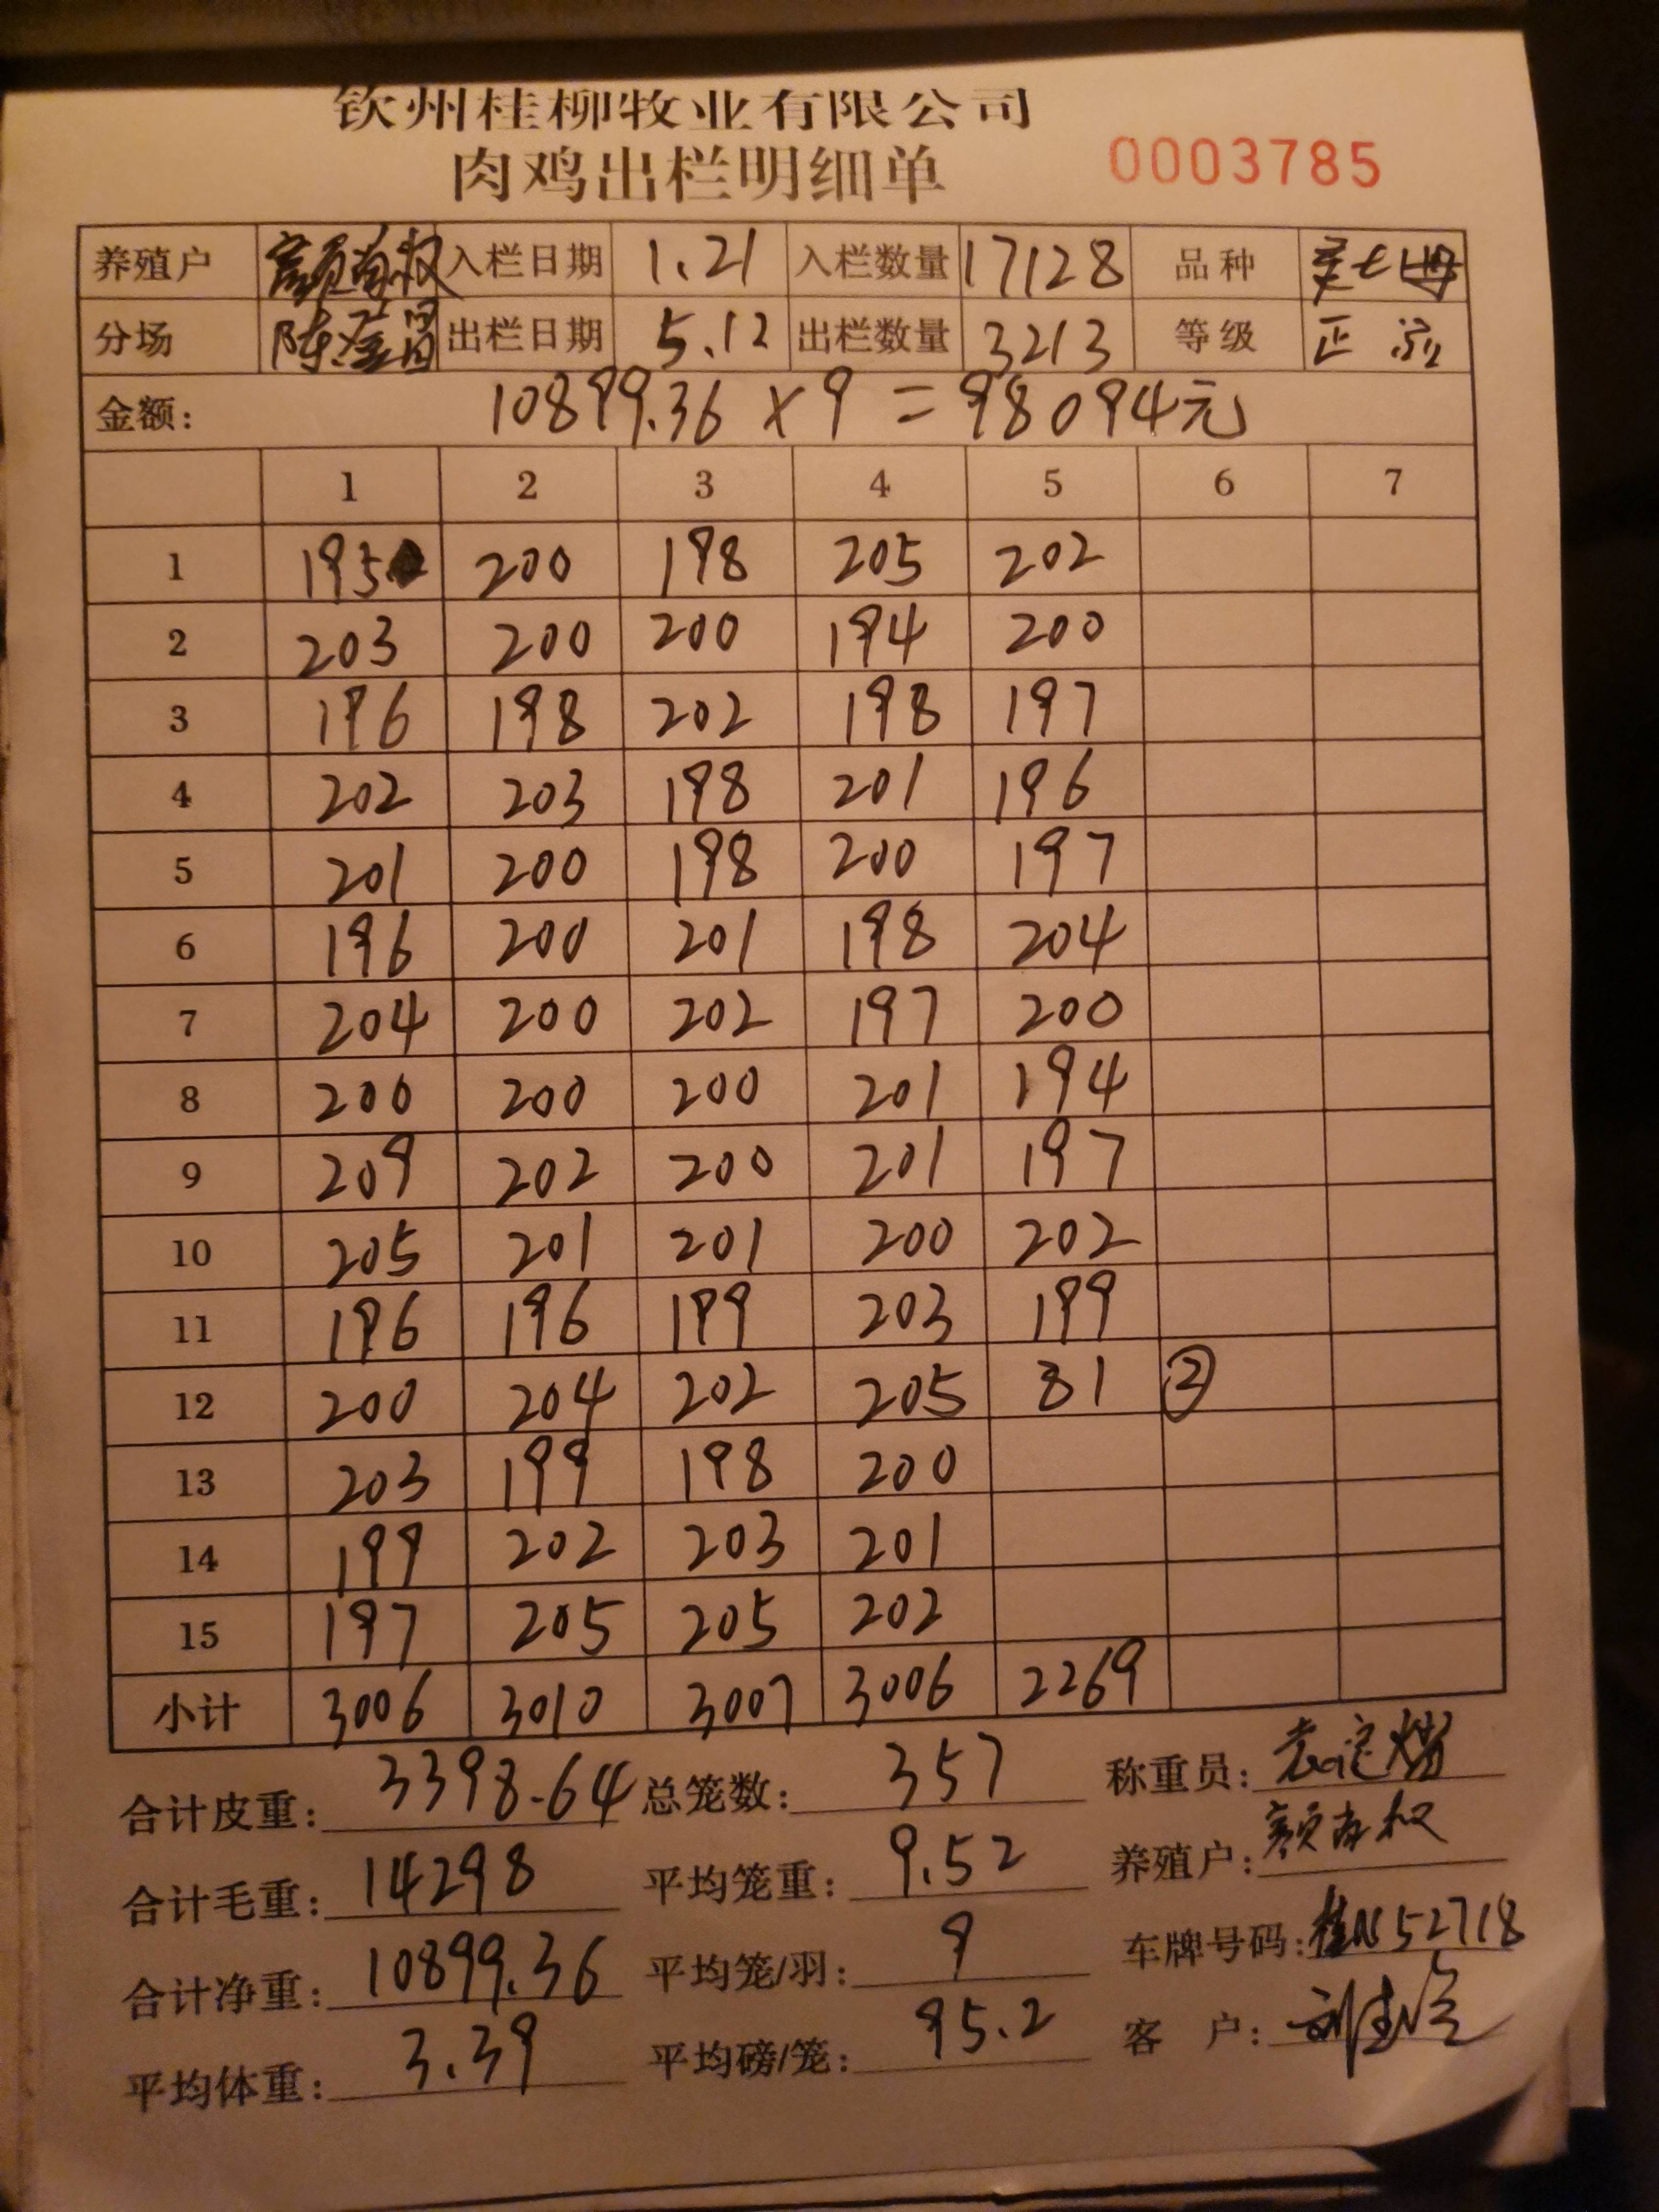 钦州桂柳牧业有限公司
肉鸡出栏明细单 0003785
养殖户 入栏日期 1.21 入栏数量 17128 品种
分场 出栏日期 5.12 出栏数量 3213 等级 正
金额: 10899.36 x 9 = 98094元
1 2 3 4 5 6 7
1 195 200 198 205 202
2 203 200 200 194 200
3 196 198 202 198 197
4 202 203 198 201 196
5 201 200 198 200 197
6 196 200 201 198 204
7 204 200 202 197 200
8 200 200 200 201 194
9 209 202 200 201 197
10 205 201 201 200 202
11 196 196 199 203 199
12 200 204 202 205 81 ②
13 203 199 198 200
14 199 202 203 201
15 197 205 205 202
小计 3006 3010 3007 3006 2269
合计皮重: 3398.64 总笼数: 357 称重员:
合计毛重: 14298 平均笼重: 9.52 养殖户:
合计净重: 10899.36 平均笼/羽: 9 车牌号码: 桂N52718
平均体重: 3.39 平均磅/笼: 95.2 客 户: